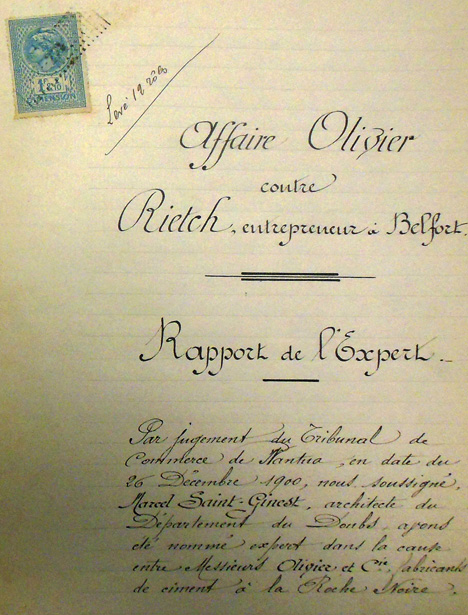 DIMENSION
Affaire Olivier
contre
Rietch, entrepreneur à Belfort.
Rapport de l'Expert.
Par jugement du Tribunal de
Commerce de Nantua, en date du
26 Décembre 1900, nous soussigné,
Marcel Saint-Ginest, architecte du
Département du Doubs, avons
été nommé expert dans la cause
entre Messieurs Olivier et Cie, fabricants
de ciment à la Roche Noire,